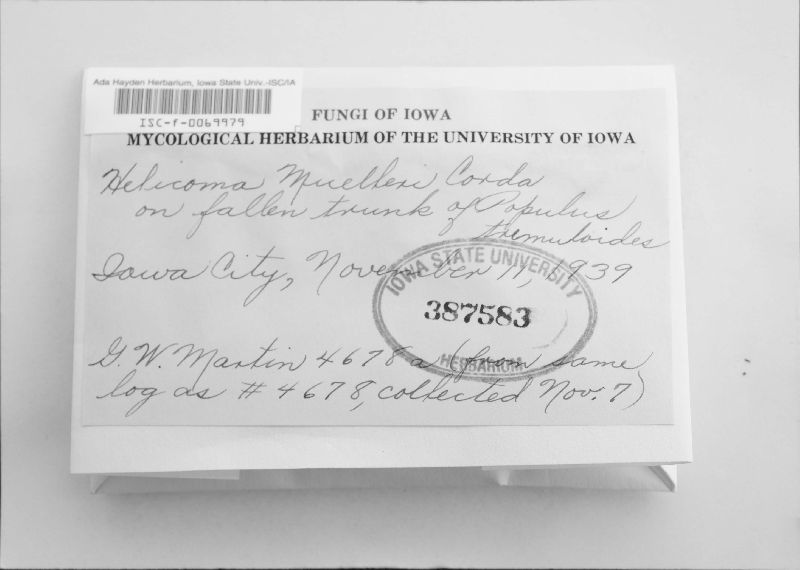 Ada Hayden Herbarium, Iowa State Univ.-ISC/IA
ISC-f-0069979
FUNGI OF IOWA
MYCOLOGICAL HERBARIUM OF THE UNIVERSITY OF IOWA
Helicoma Muelleri Corda
on fallen trunk of Populus
tremuloides
Iowa City, November 11, 1939
IOWA STATE UNIVERSITY
387583
HERBARIUM
G. W. Martin 4678a (from same
log as # 4678, collected Nov. 7)